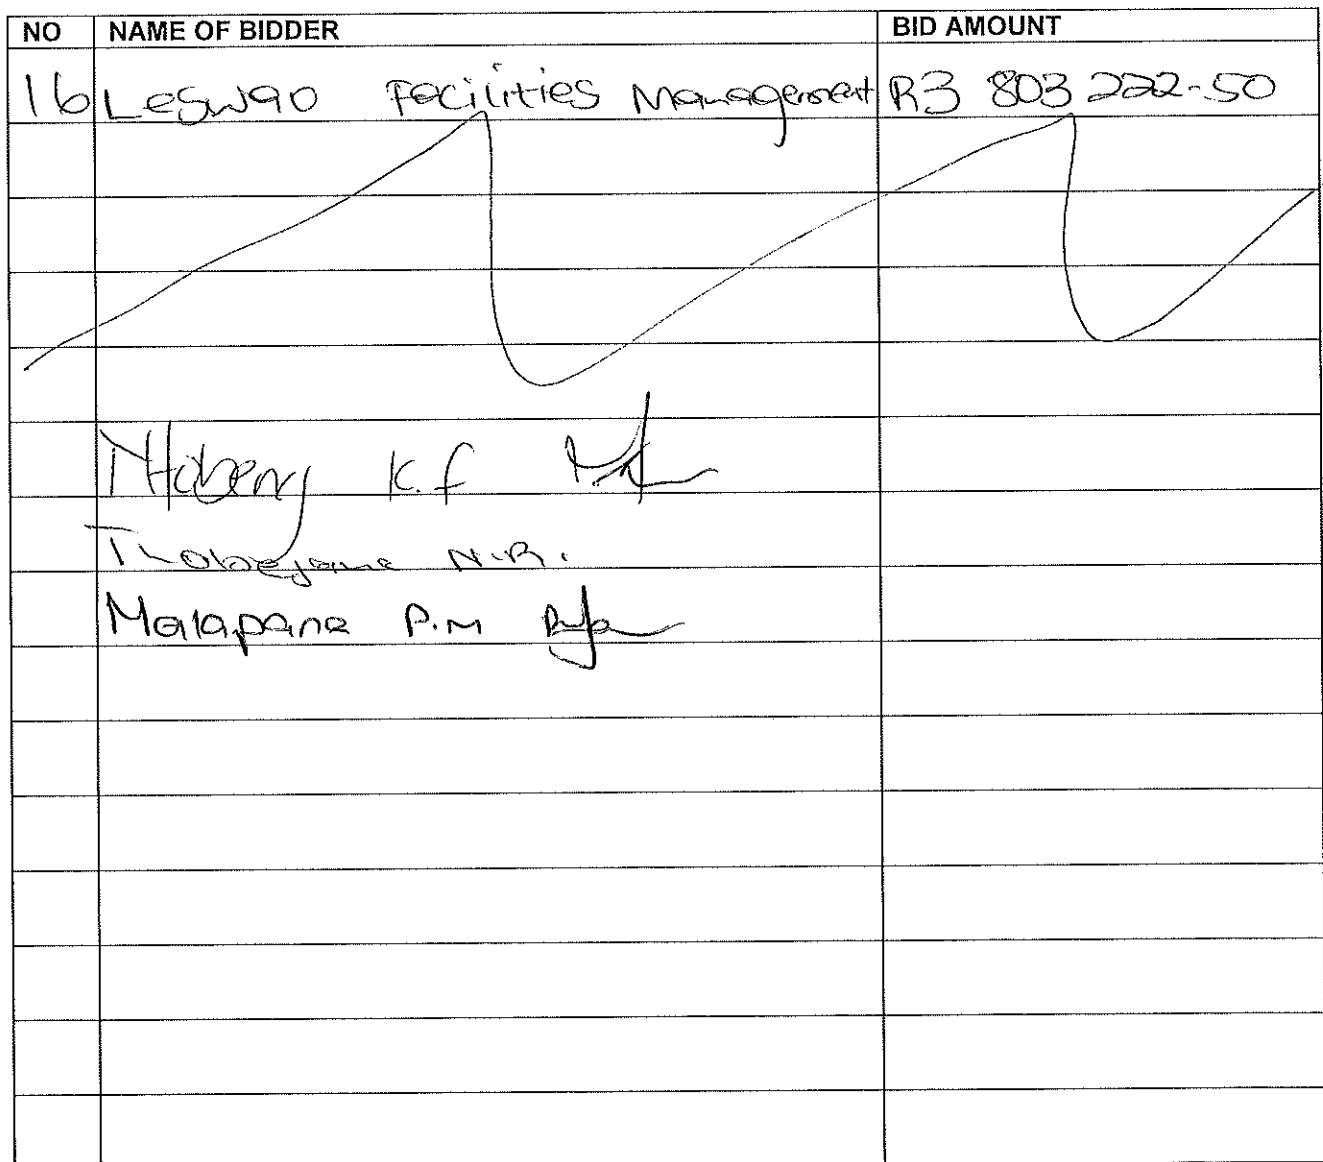 NO NAME OF BIDDER BID AMOUNT
16 Leswao Facilities Management R3 803 222-50
K.F
N.R.
Malapane P.M